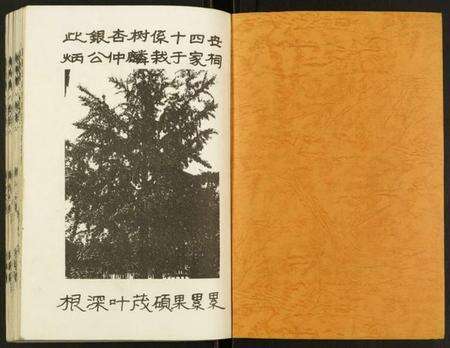 此銀杏树係十四世
炳公仲麟栽于家祠
根深叶茂碩果累累